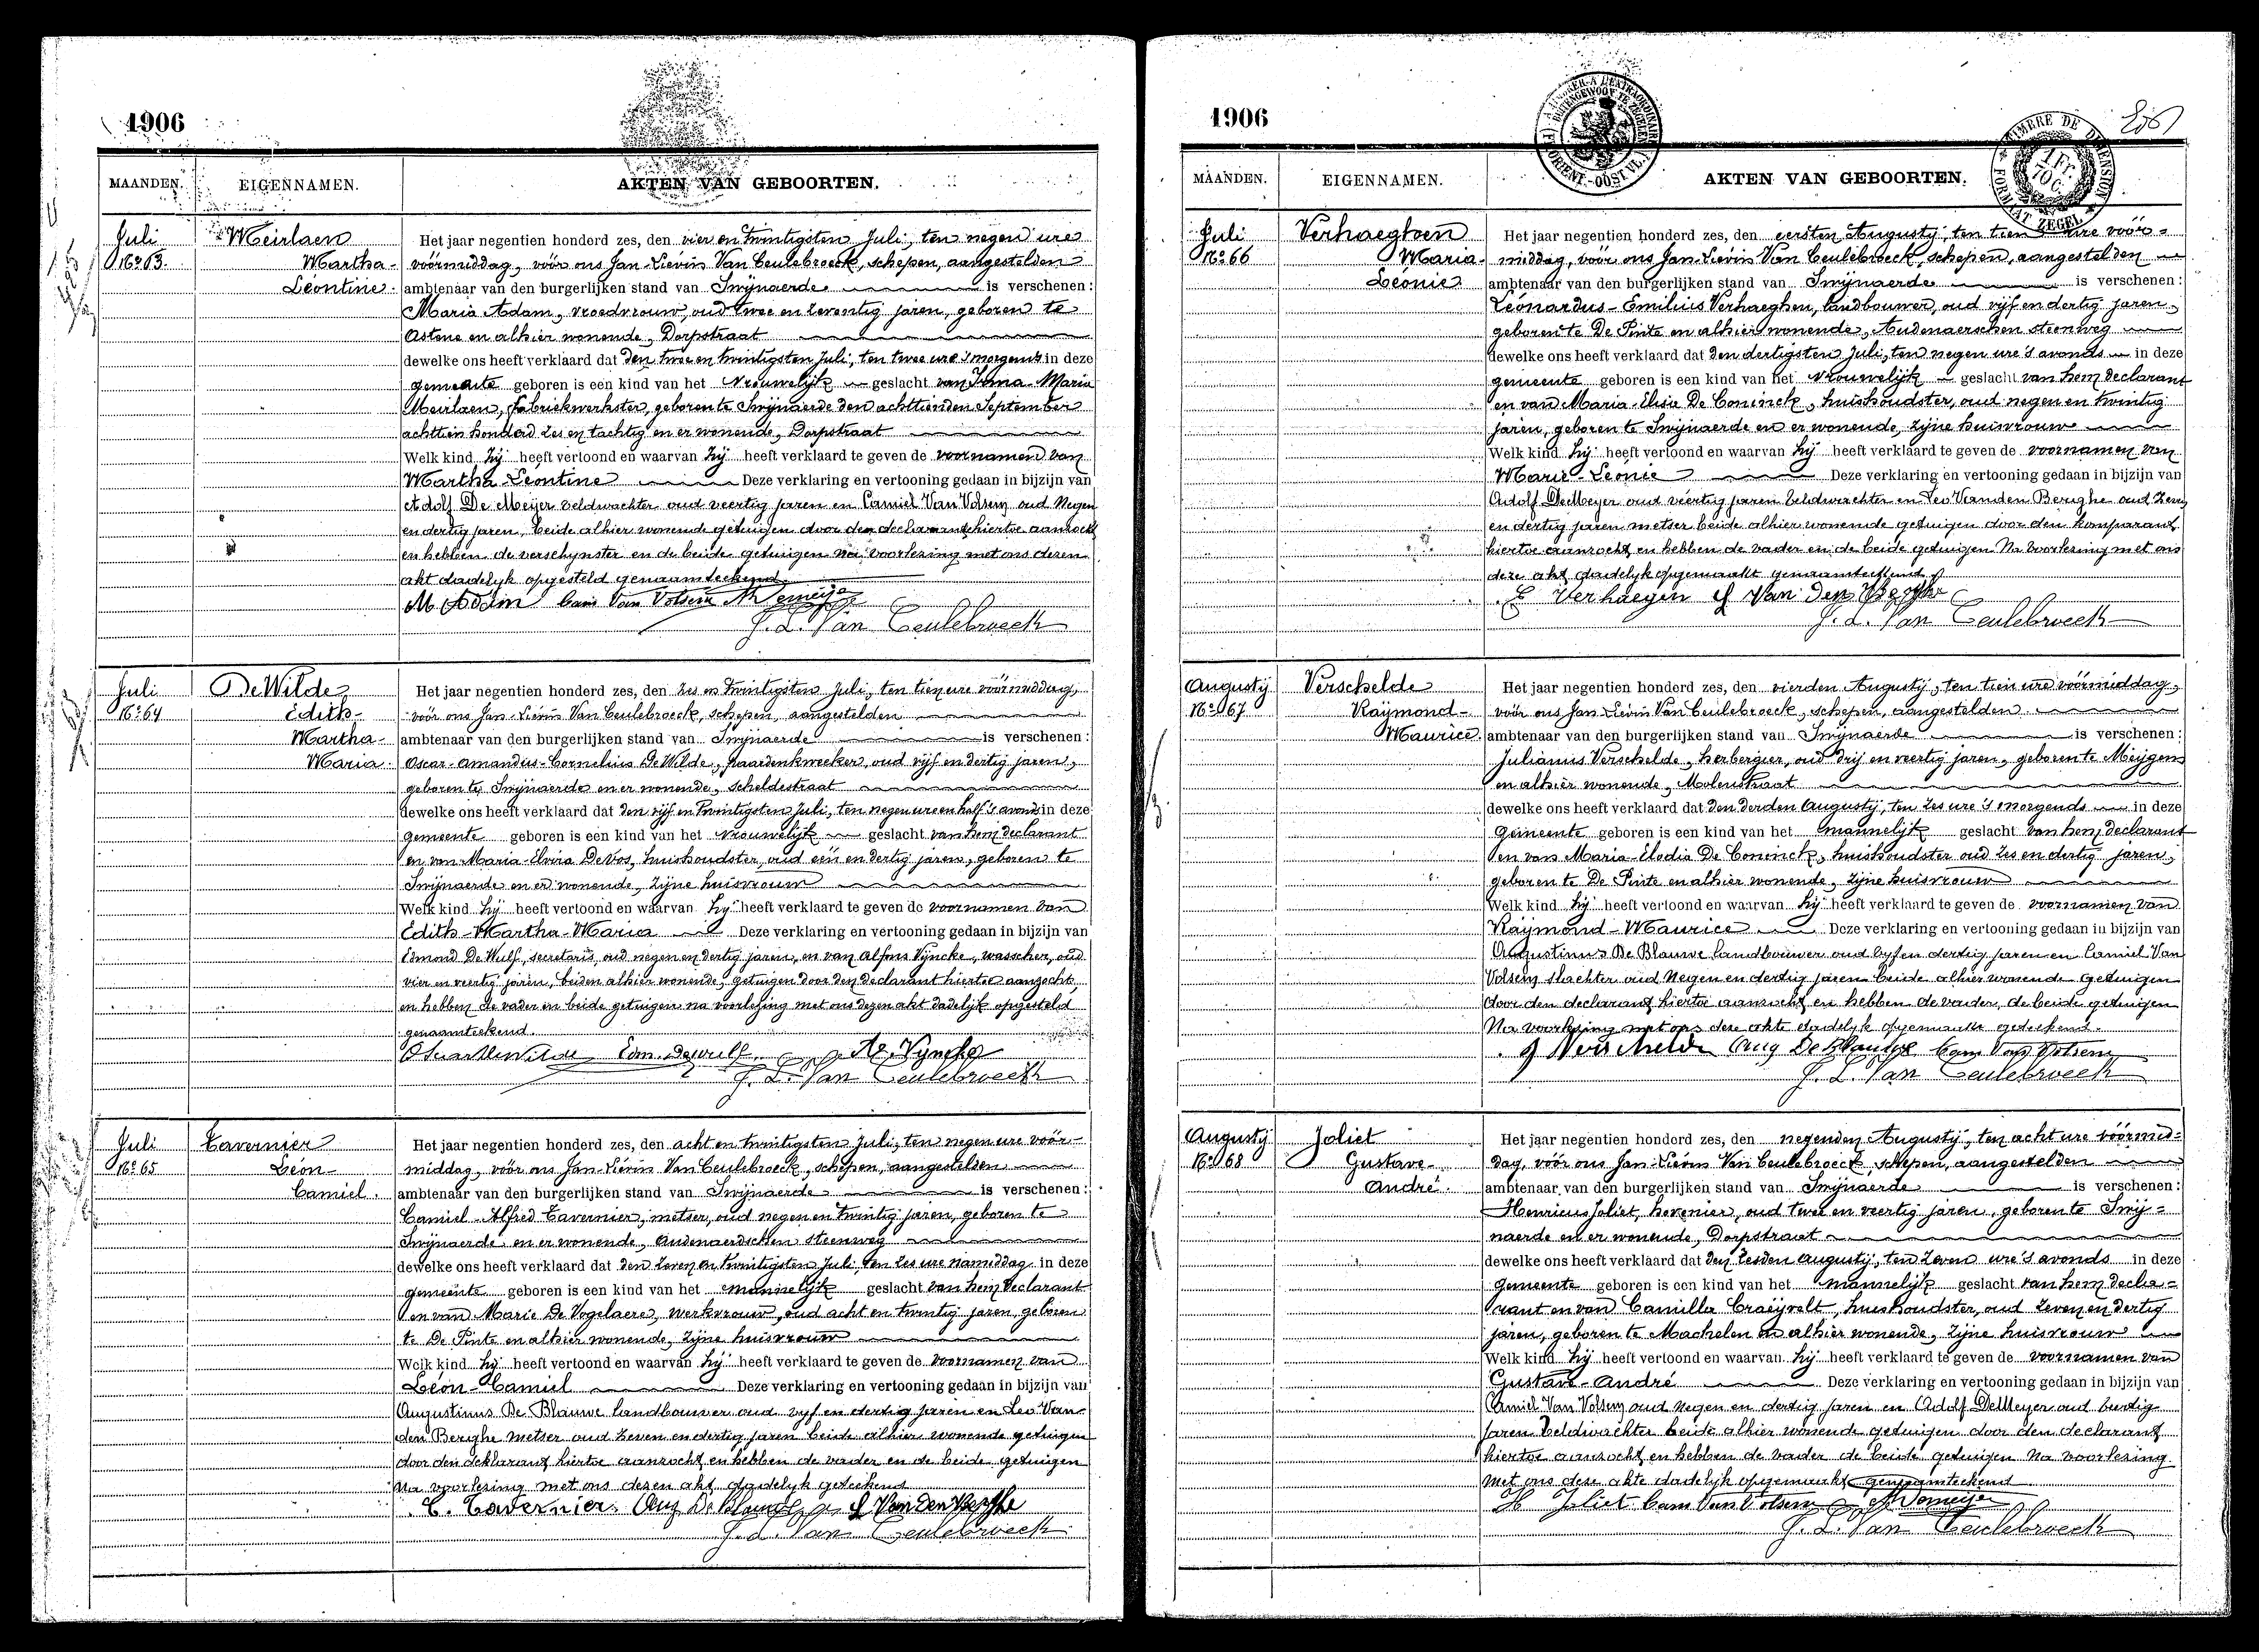 1906
MAANDEN. EIGENNAMEN. AKTEN VAN GEBOORTEN.
Juli
No 63.
Meirlaen
Martha-
Léontine.
Het jaar negentien honderd zes, den vier en twintigsten Juli, ten negen ure
vóórmiddag, vóór ons Jan-Liévin Van Ceulebroeck, schepen, aangestelden
ambtenaar van den burgerlijken stand van Swijnaerde is verschenen:
Maria Adam, vroedvrouw, oud twee en zeventig jaren, geboren te
Astene en alhier wonende, Dorpstraat
dewelke ons heeft verklaard dat den twee en twintigsten Juli, ten twee ure 's morgends in deze
gemeente geboren is een kind van het vrouwelijk geslacht van Irma-Maria
Meirlaen, fabriekwerkster, geboren te Swijnaerde den achttienden September
achttien honderd zes en tachtig en er wonende, Dorpstraat
Welk kind zij heeft vertoond en waarvan zij heeft verklaard te geven de voornamen van
Martha-Léontine Deze verklaring en vertooning gedaan in bijzijn van
Adolf De Meijer veldwachter oud veertig jaren en Camiel Van Volsem oud Negen
en dertig jaren, beide alhier wonende getuigen door den declarante hiertoe aanzocht
en hebben de verschynster en de beide getuigen na voorlezing met ons dezen
akt dadelyk opgesteld genaamteekend
M Adam Cam Van Volsem A Demeyer
J. L. Van Ceulebroeck
Juli
No 64
De Wilde
Edith-
Martha-
Maria.
Het jaar negentien honderd zes, den zes en twintigsten Juli, ten tien ure vóórmiddag,
vóór ons Jan-Liévin Van Ceulebroeck, schepen, aangestelden
ambtenaar van den burgerlijken stand van Swijnaerde is verschenen:
Oscar-Amandus-Cornelius De Wilde, paardenkweeker, oud vijf en dertig jaren,
geboren te Swijnaerde en er wonende, Scheldestraat
dewelke ons heeft verklaard dat den vijf en twintigsten Juli, ten negen ure en half 's avonds in deze
gemeente geboren is een kind van het vrouwelijk geslacht van hem declarant
en van Maria-Elvira De Vos, huishoudster, oud een en dertig jaren, geboren te
Swijnaerde en er wonende, zijne huisvrouw
Welk kind hij heeft vertoond en waarvan hij heeft verklaard te geven de voornamen van
Edith-Martha-Maria Deze verklaring en vertooning gedaan in bijzijn van
Edmond De Wulf, secretaris, oud negen en dertig jaren, en van Alfons Vyncke, wasscher, oud
vier en veertig jaren, beiden alhier wonende, getuigen door den declarant hiertoe aanzocht,
en hebben de vader en beide getuigen na voorlezing met ons dezen akt dadelijk opgesteld
genaamteekend.
Oscar Dewilde Edm. Dewulf. Al. Vyncke
J. L. Van Ceulebroeck
Juli
No 65
Tavernier
Léon-
Camiel.
Het jaar negentien honderd zes, den acht en twintigsten Juli, ten negen ure vóór-
middag, vóór ons Jan-Liévin Van Ceulebroeck, schepen, aangestelden
ambtenaar van den burgerlijken stand van Swijnaerde is verschenen:
Camiel-Alfred Tavernier, metser, oud negen en twintig jaren, geboren te
Swijnaerde en er wonende, Audenaerdschen steenweg
dewelke ons heeft verklaard dat den zeven en twintigsten Juli, ten zes ure namiddag in deze
gemeente geboren is een kind van het mannelijk geslacht van hem declarant
en van Marie De Vogelaere, werkvrouw, oud acht en twintig jaren, geboren
te De Pinte en alhier wonende, zijne huisvrouw
Welk kind hij heeft vertoond en waarvan hij heeft verklaard te geven de voornamen van
Léon-Camiel Deze verklaring en vertooning gedaan in bijzijn van
Augustinus De Blauwe landbouwer oud vyf en dertig jaren en Leo Van-
den Berghe metser oud zeven en dertig jaren beide alhier wonende getuigen
door den deklarant hiertoe aanzocht en hebben de vader en de beide getuigen
Na voorlezing met ons dezen akt dadelyk geteekend
C. Tavernier. Aug De Blauwe L Van den Berghe
J. L. Van Ceulebroeck
1906
TIMBRE DE DIMENSION
1 Fr. 10 C.
FORMAAT ZEGEL
MAANDEN. EIGENNAMEN. AKTEN VAN GEBOORTEN.
Juli
No 66
Verhaeghen
Maria-
Léonie
Het jaar negentien honderd zes, den eersten Augusty, ten tien ure vóór-
middag, vóór ons Jan-Liévin Van Ceulebroeck, schepen, aangestelden
ambtenaar van den burgerlijken stand van Swijnaerde is verschenen:
Léonardus-Emilius Verhaeghen, landbouwer, oud vijf en dertig jaren,
geboren te De Pinte en alhier wonende, Audenaerschen steenweg
dewelke ons heeft verklaard dat den dertigsten Juli, ten negen ure 's avonds in deze
gemeente geboren is een kind van het vrouwelijk geslacht van hem declarant
en van Maria-Elisa De Coninck, huishoudster, oud negen en twintig
jaren, geboren te Swijnaerde en er wonende, zijne huisvrouw
Welk kind hij heeft vertoond en waarvan hij heeft verklaard te geven de voornamen van
Marie-Léonie Deze verklaring en vertooning gedaan in bijzijn van
Adolf DeMeyer oud veertig jaren veldwachter en Leo Vanden Berghe oud zeven
en dertig jaren metser beide alhier wonende getuigen door den komparant
hiertoe aanzocht en hebben de vader en de beide getuigen Na voorlezing met ons
deze akt dadelyk opgemaakt genaamteekend
E Verhaegen L Van Den Berghe
J. L. Van Ceulebroeck
Augustij
No 67
Verschelde
Raymond-
Maurice.
Het jaar negentien honderd zes, den vierden Augustij, ten tien ure vóórmiddag,
vóór ons Jan-Liévin Van Ceulebroeck, schepen, aangestelden
ambtenaar van den burgerlijken stand van Swijnaerde is verschenen:
Julianus Verschelde, herbergier, oud drij en veertig jaren, geboren te Meijgem
en alhier wonende, Molenstraat
dewelke ons heeft verklaard dat den derden Augustij, ten zes ure 's morgends in deze
gemeente geboren is een kind van het mannelijk geslacht van hem declarant
en van Maria-Elodia De Coninck, huishoudster oud zes en dertig jaren,
geboren te De Pinte en alhier wonende, zijne huisvrouw
Welk kind hij heeft vertoond en waarvan hij heeft verklaard te geven de voornamen van
Raymond-Maurice Deze verklaring en vertooning gedaan in bijzijn van
Augustinus De Blauwe landbouwer oud vyf en dertig jaren en Camiel Van
Volsem slachter oud Negen en dertig jaren beide alhier wonende getuigen
door den declarant hiertoe aanzocht en hebben de vader, de beide getuigen
Na voorlezing met ons deze akte dadelyk opgemaakt geteekend.
J Verschelde Aug De Blauwe Cam Van Volsem
J. L. Van Ceulebroeck
Augustij
No 68
Joliet
Gustave-
André.
Het jaar negentien honderd zes, den negenden Augustij, ten acht ure vóórmid-
dag, vóór ons Jan-Liévin Van Ceulebroeck, schepen, aangestelden
ambtenaar van den burgerlijken stand van Swijnaerde is verschenen:
Henricus Joliet, hovenier, oud twee en veertig jaren, geboren te Swij-
naerde en er wonende, Dorpstraat
dewelke ons heeft verklaard dat den zesden Augustij, ten zeven ure 's avonds in deze
gemeente geboren is een kind van het mannelijk geslacht van hem decla-
rant en van Camilla Craeijvelt, huishoudster, oud zeven en dertig
jaren, geboren te Machelen en alhier wonende, zijne huisvrouw
Welk kind hij heeft vertoond en waarvan hij heeft verklaard te geven de voornamen van
Gustave-André Deze verklaring en vertooning gedaan in bijzijn van
Camiel Van Volsem oud negen en dertig jaren en Adolf DeMeyer oud veertig
jaren veldwachter beide alhier wonende getuigen door den declarant
hiertoe aanzocht en hebben de vader de beide getuigen Na voorlezing
met ons deze akte dadelyk opgemaakt genaamteekend
H Joliet Cam Van Volsem A Demeyer
J. L. Van Ceulebroeck